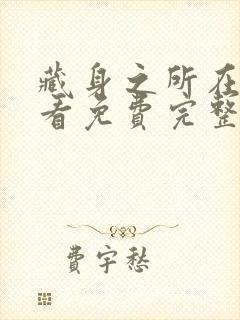 藏身之所在
看免费完整
费宇愁